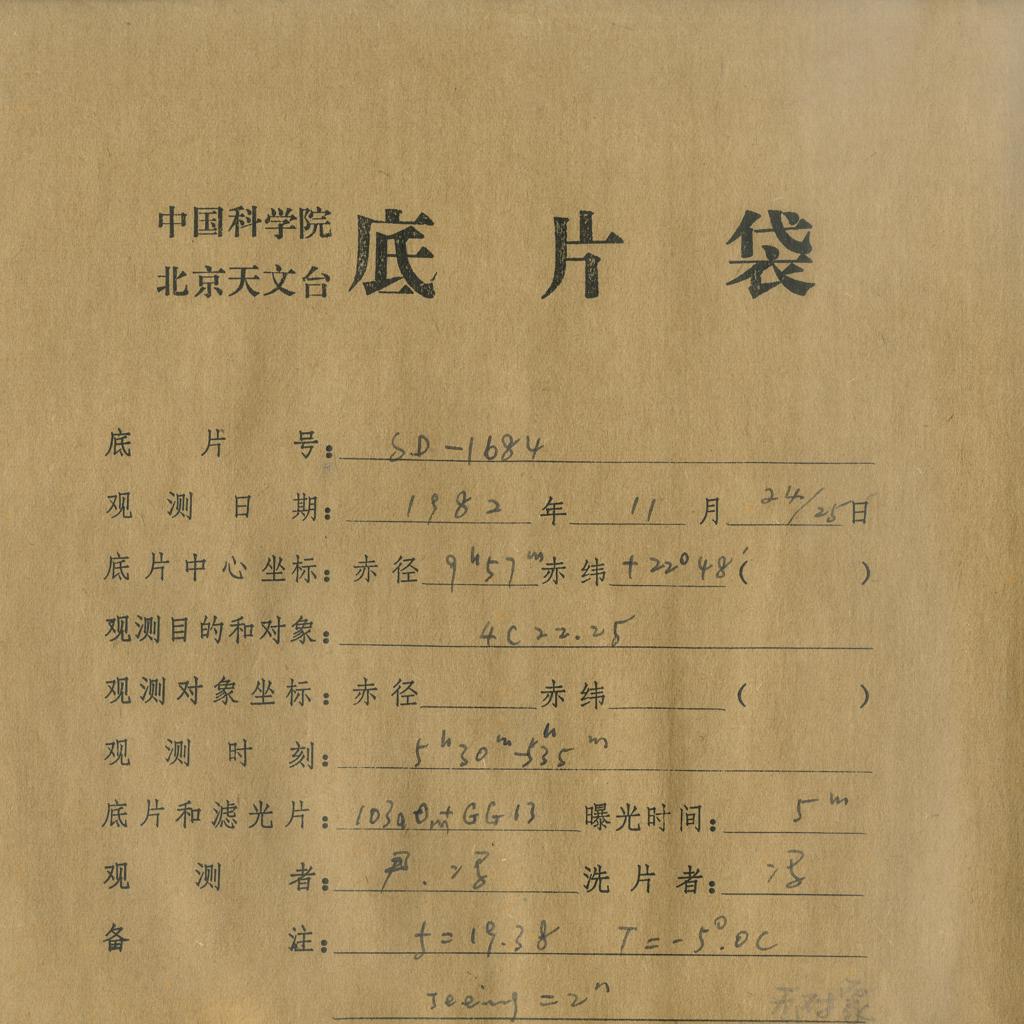 中国科学院
北京天文台
底片袋
底片号：SD-1684
观测日期：1982年11月24/25日
底片中心坐标：赤径9h57m赤纬+22°48′( )
观测目的和对象：4C22.25
观测对象坐标：赤径 赤纬 ( )
观测时刻：5h30m-5h35m
底片和滤光片：103aO+GG13 曝光时间：5m
观测者：尹.冯 洗片者：冯
备注：f=19.38 T=-5°.0C
seeing=2"
无对象